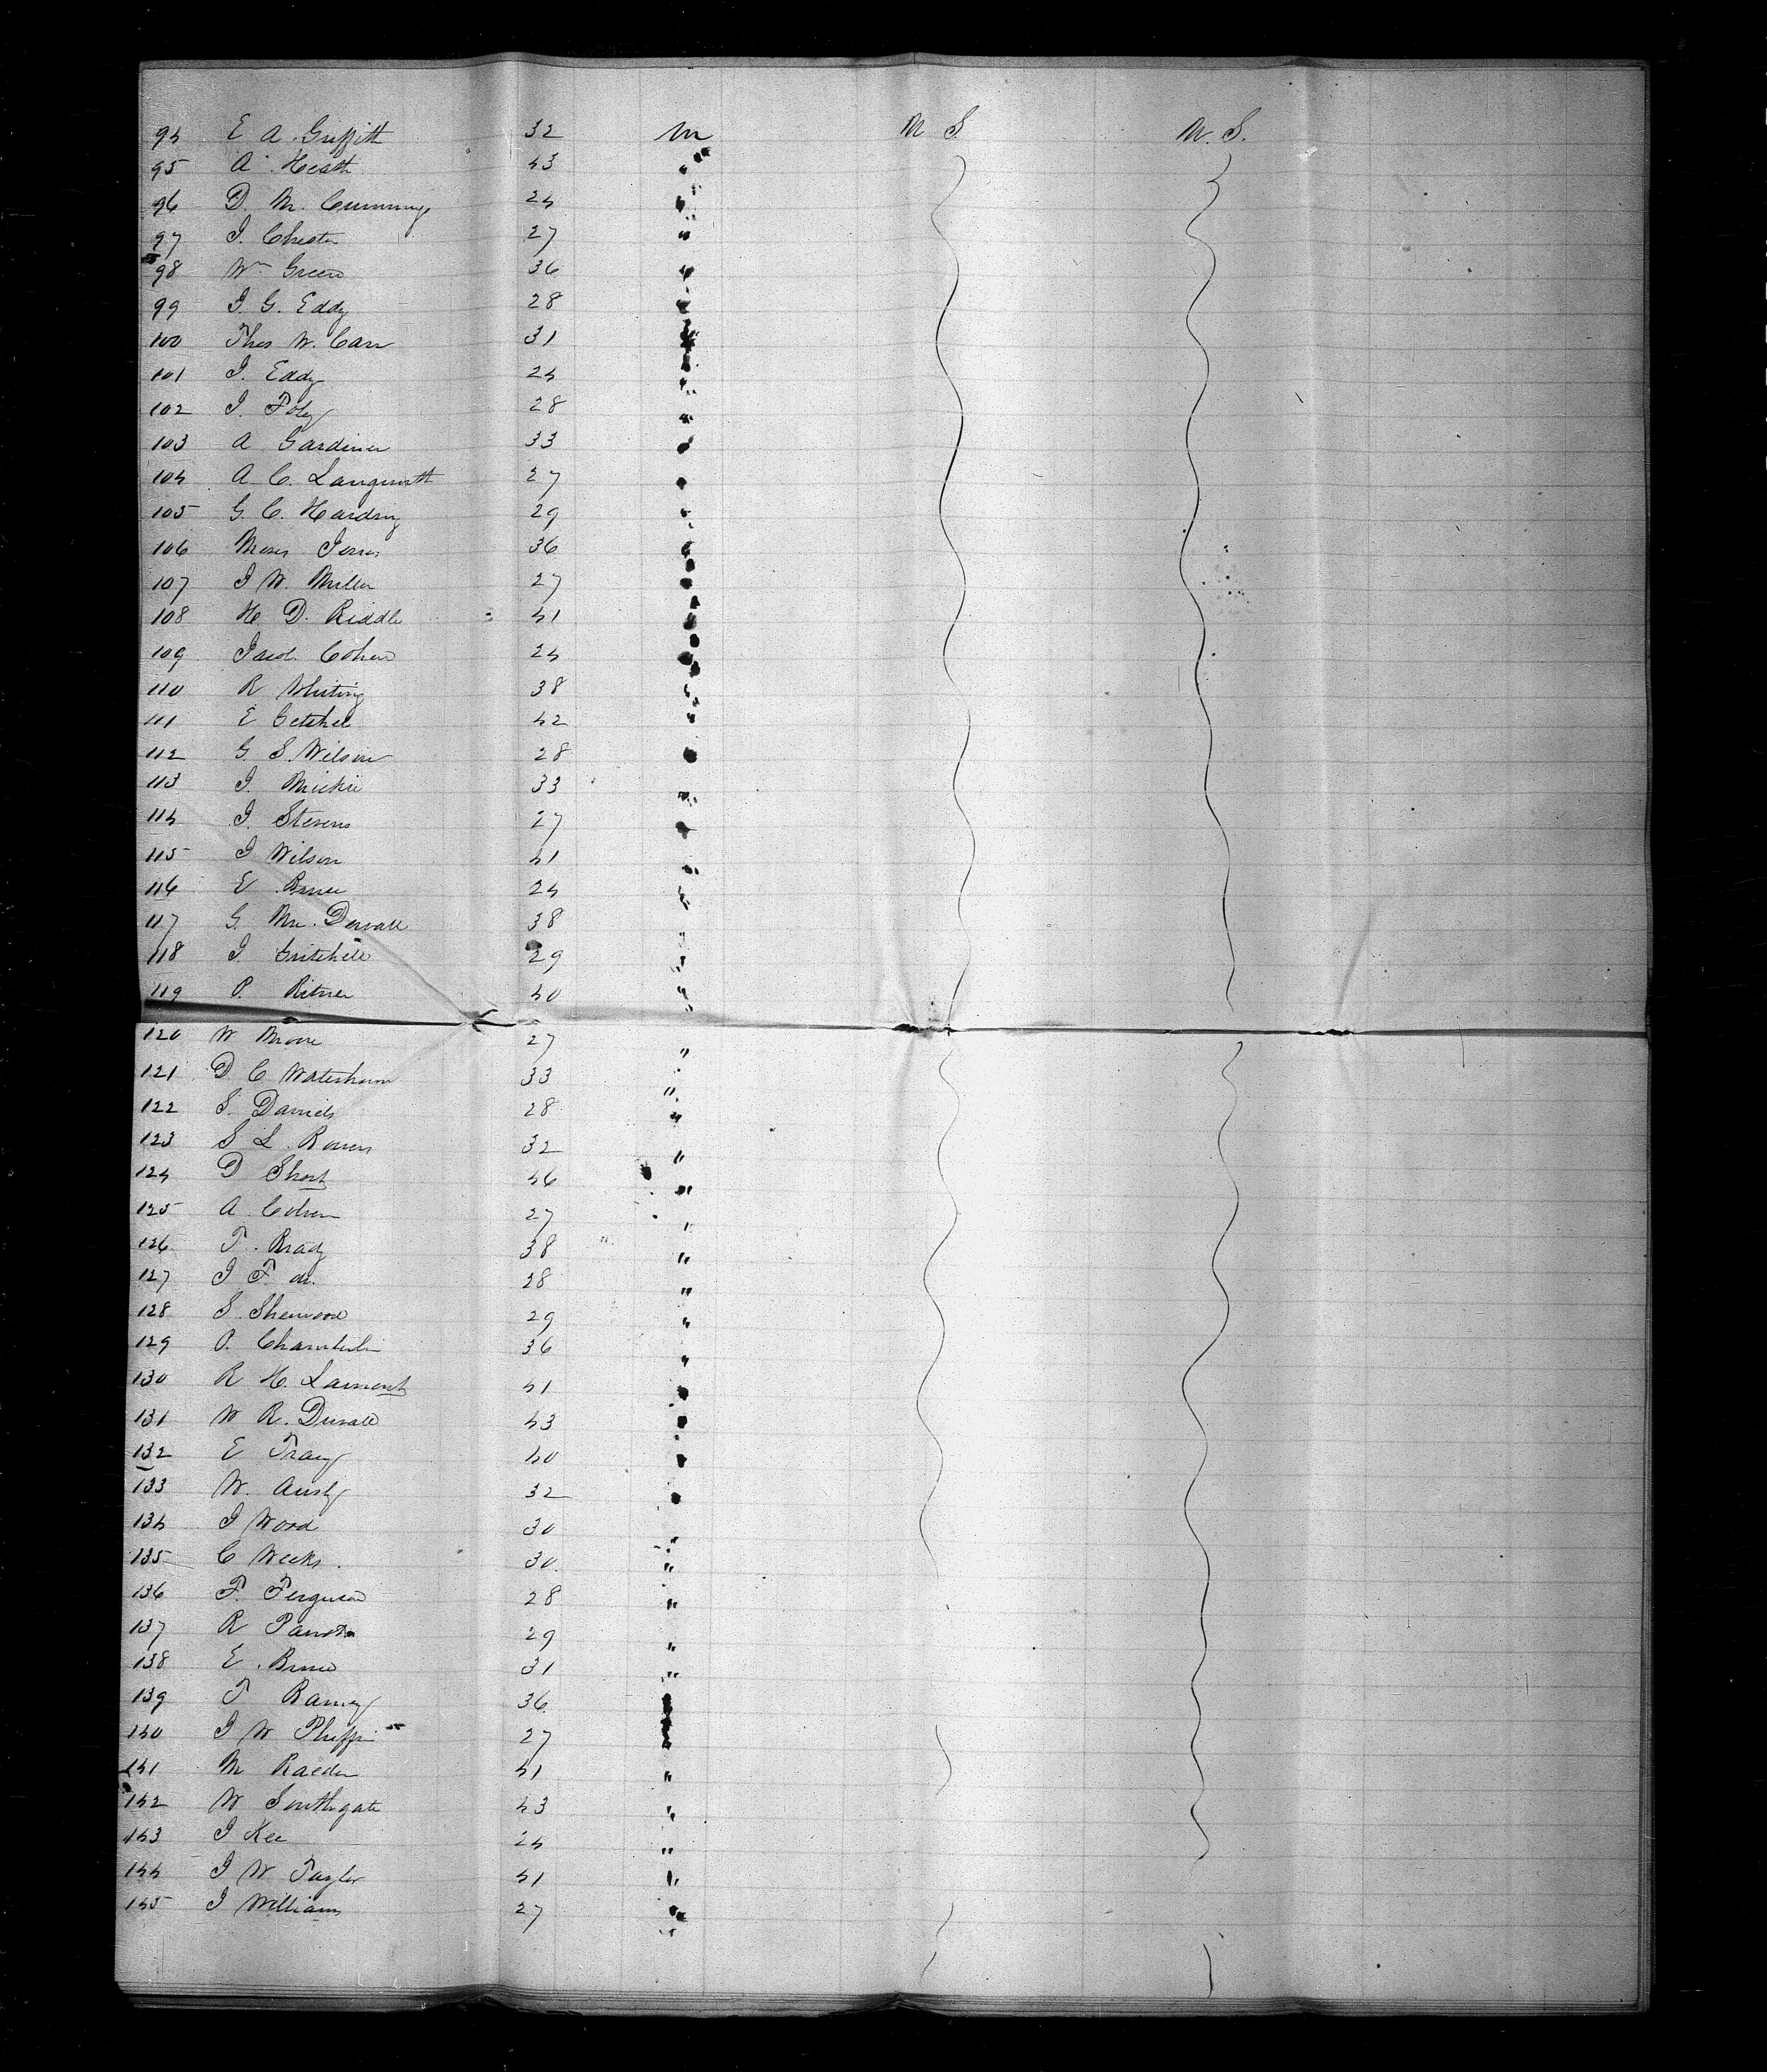 94 E A. Griffith 32 M M S. M. S.
95 A. Heath 43 "
96 D. M. Cummings 24 "
97 J. Chester 27 "
98 Wm Green 36 "
99 J. G. Eddy 28 "
100 Thos W. Carr 31 "
101 J. Eddy 24 "
102 J. Foley 28 "
103 A Gardiner 33 "
104 A. C. Langworth 27 "
105 G. C. Harding 29 "
106 Moses Jones 36 "
107 J W. Miller 27 "
108 H D. Riddle 41 "
109 Cohen 24 "
110 R Whiting 38 "
111 E Getchel 42 "
112 G. S. Wilson 28 "
113 J. Michie 33 "
114 J. Stevens 27 "
115 J Wilson 41 "
116 E Bruce 24 "
117 G. Duvall 38 "
118 J. 29 "
119 P. Ritner 40 "
120 W Moore 27 "
121 D C Waterhouse 33 "
122 S. Daniels 28 "
123 S L. Bowers 32 "
124 D Short 46 "
125 A. Cohen 27 "
126 T. Brady 38 "
127 J F do. 28 "
128 S. Sherwood 29 "
129 P. Chamberlin 36 "
130 R H. Lamont 41 "
131 W R. Duvall 43 "
132 E Tracy 40 "
133 W. 32 "
134 J Wood 30 "
135 C Weeks. 30. "
136 F. Ferguson 28 "
137 R Parrott 29 "
138 E. Bruce 31 "
139 T Ramey 36. "
140 J W 27 "
141 M Raeder 41 "
142 W Southgate 43 "
143 J Kee 24 "
144 J W Taylor 41 "
145 J Williams 27 "